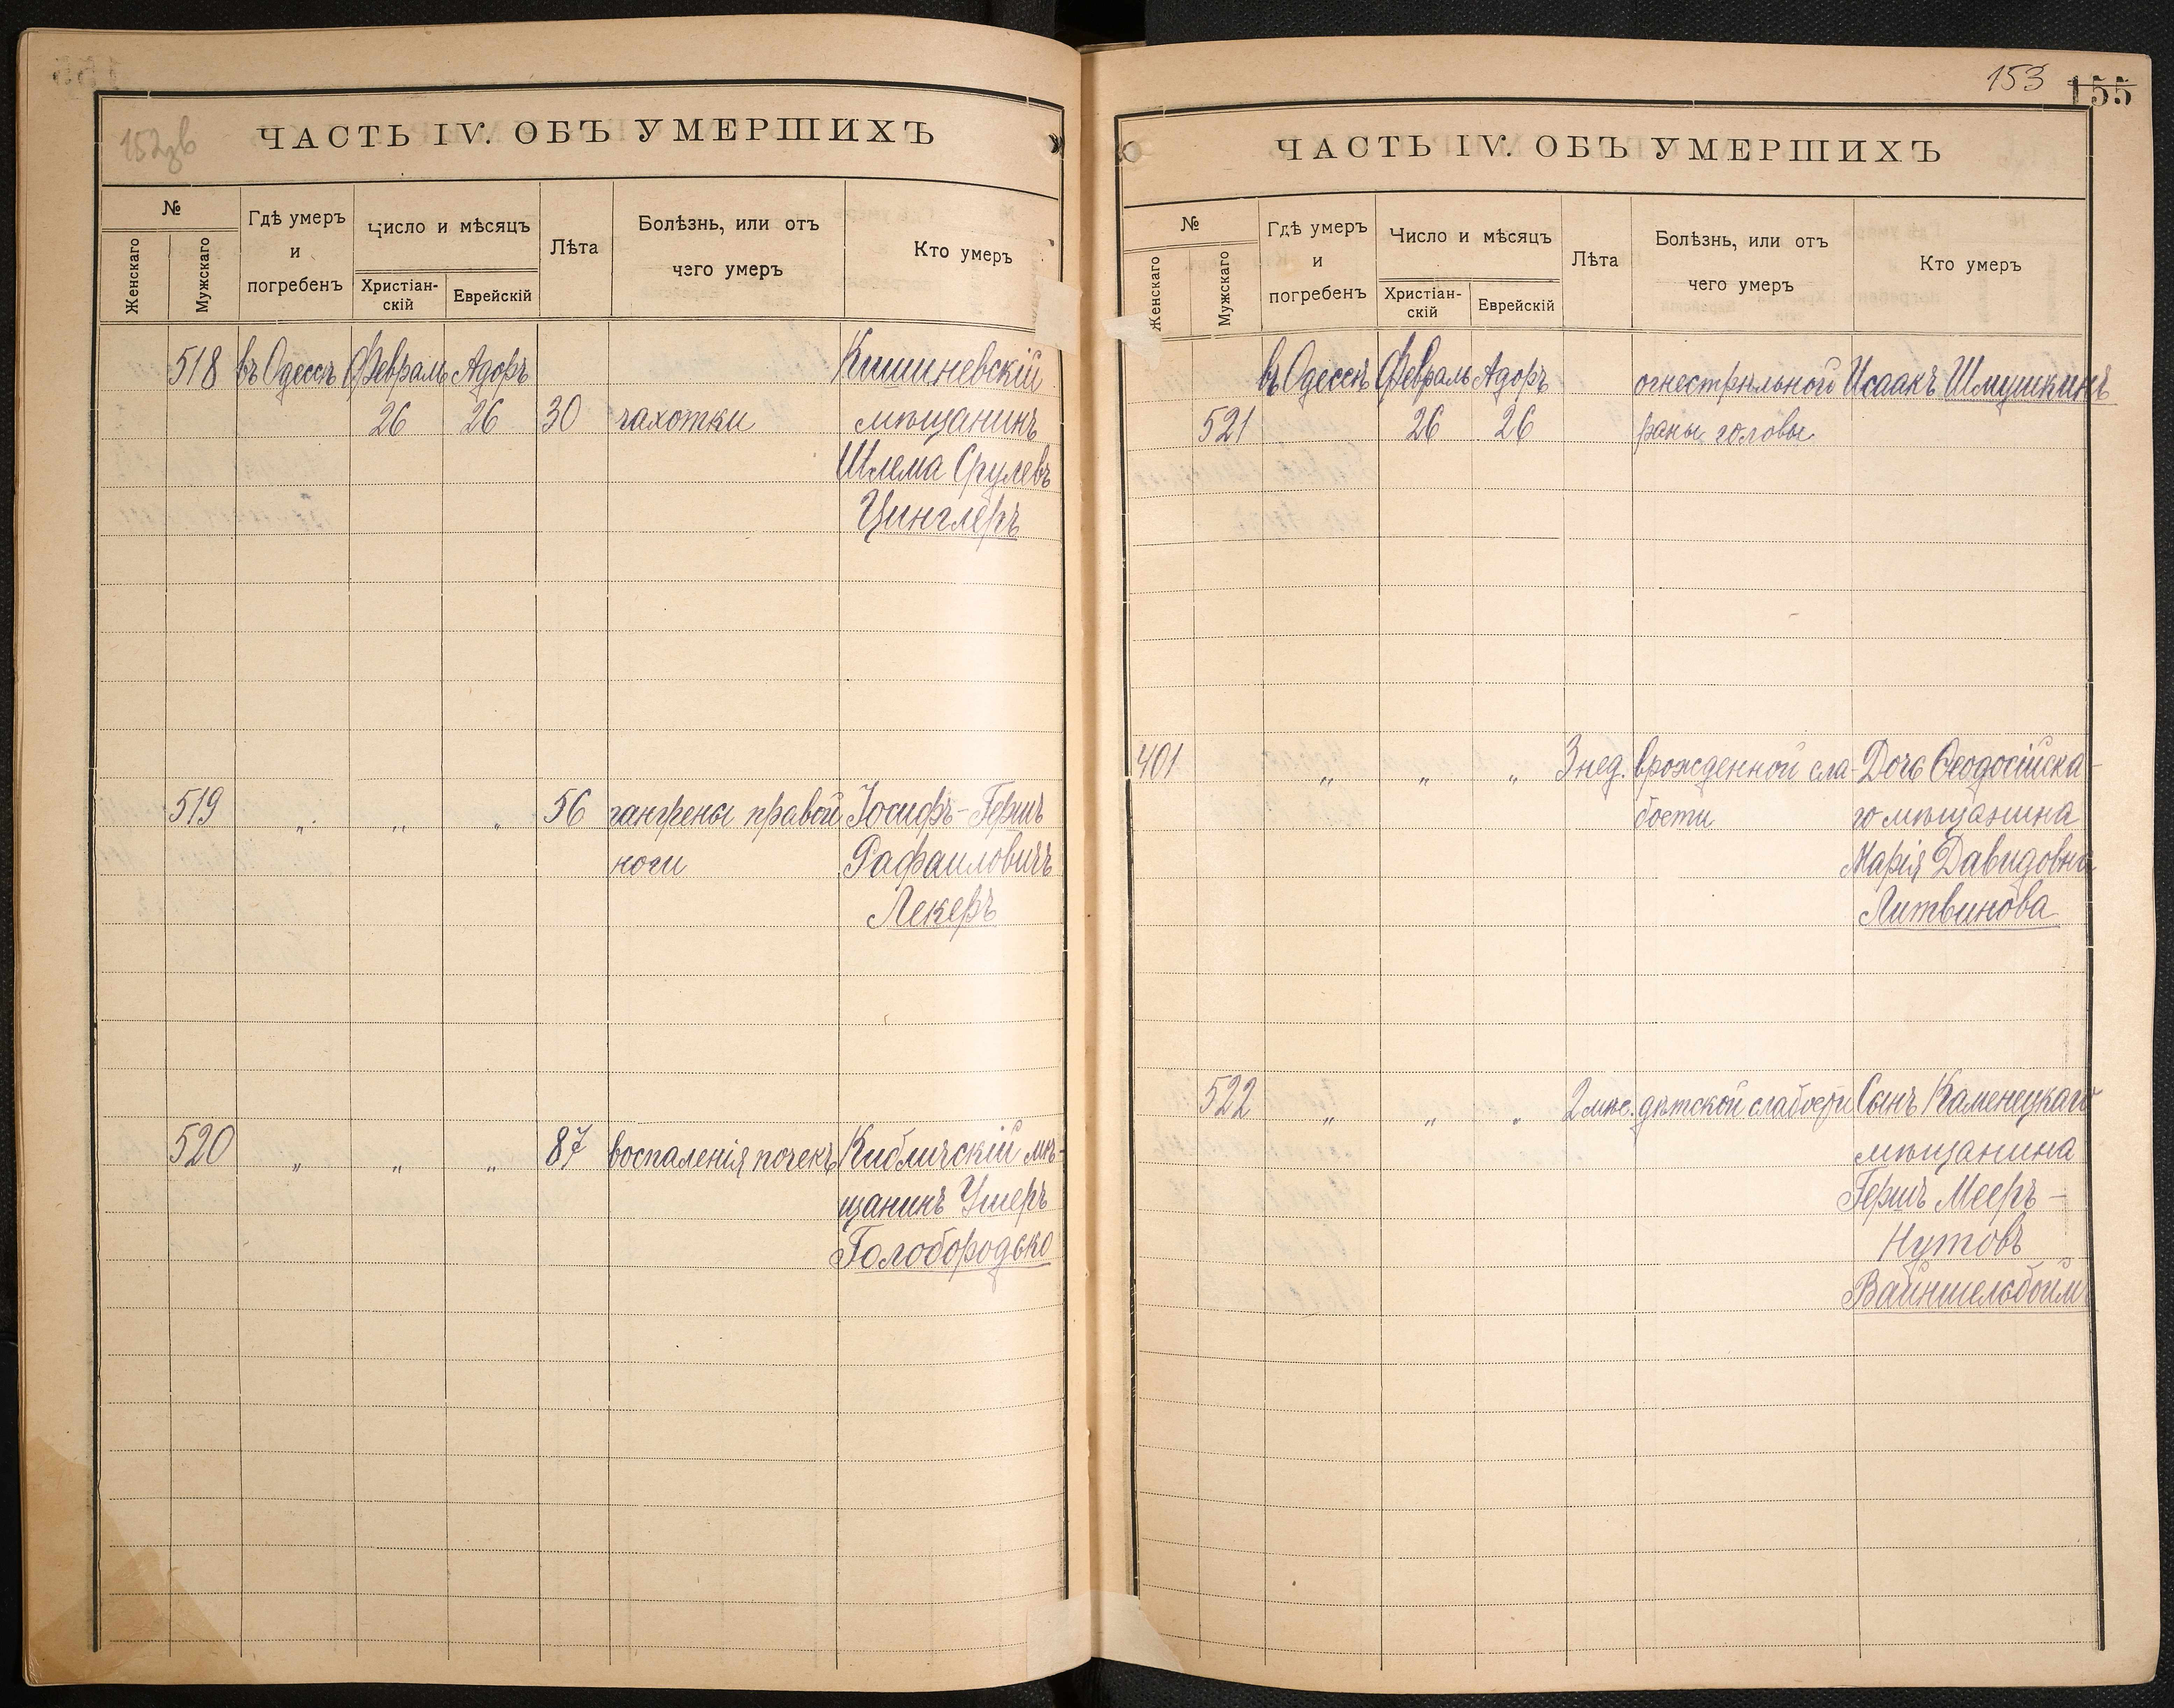 152зв
ЧАСТЬ IV. ОБЪ УМЕРШИХЪ
№
Женскаго
Мужскаго
Гдѣ умеръ
и
погребенъ
Число и мѣсяцъ
Христіан-
скій
Еврейскій
Лѣта
Болѣзнь, или отъ
чего умеръ
Кто умеръ
518 въ Одессѣ Февраль Адоръ Кишиневскій
26 26 30 чахотки мѣщанинъ
Шлема Срулевъ
Цинглеръ
519 " " " 56 гангрены правой Іосифъ-Гершъ
ноги Рафаиловичъ
Лекеръ
520 " " " 87 воспаленія почекъ Кибличскій мѣ-
щанинъ Ушеръ
Голобородько
153 155
ЧАСТЬ IV. ОБЪ УМЕРШИХЪ
№
Женскаго
Мужскаго
Гдѣ умеръ
и
погребенъ
Число и мѣсяцъ
Христіан-
скій
Еврейскій
Лѣта
Болѣзнь, или отъ
чего умеръ
Кто умеръ
въ Одессѣ Февраль Адоръ огнестрѣльной Исаакъ Шмушкинъ
521 26 26 раны головы
401 " " " 3 нед. врожденной сла- Дочь Ѳеодосійска-
бости го мѣщанина
Марія Давидовна
Литвинова
522 " " " 2 мѣс. дѣтской слабости Сынъ Каменецкаго
мѣщанина
Гершъ Мееръ-
Нутовъ
Вайншельбоймъ